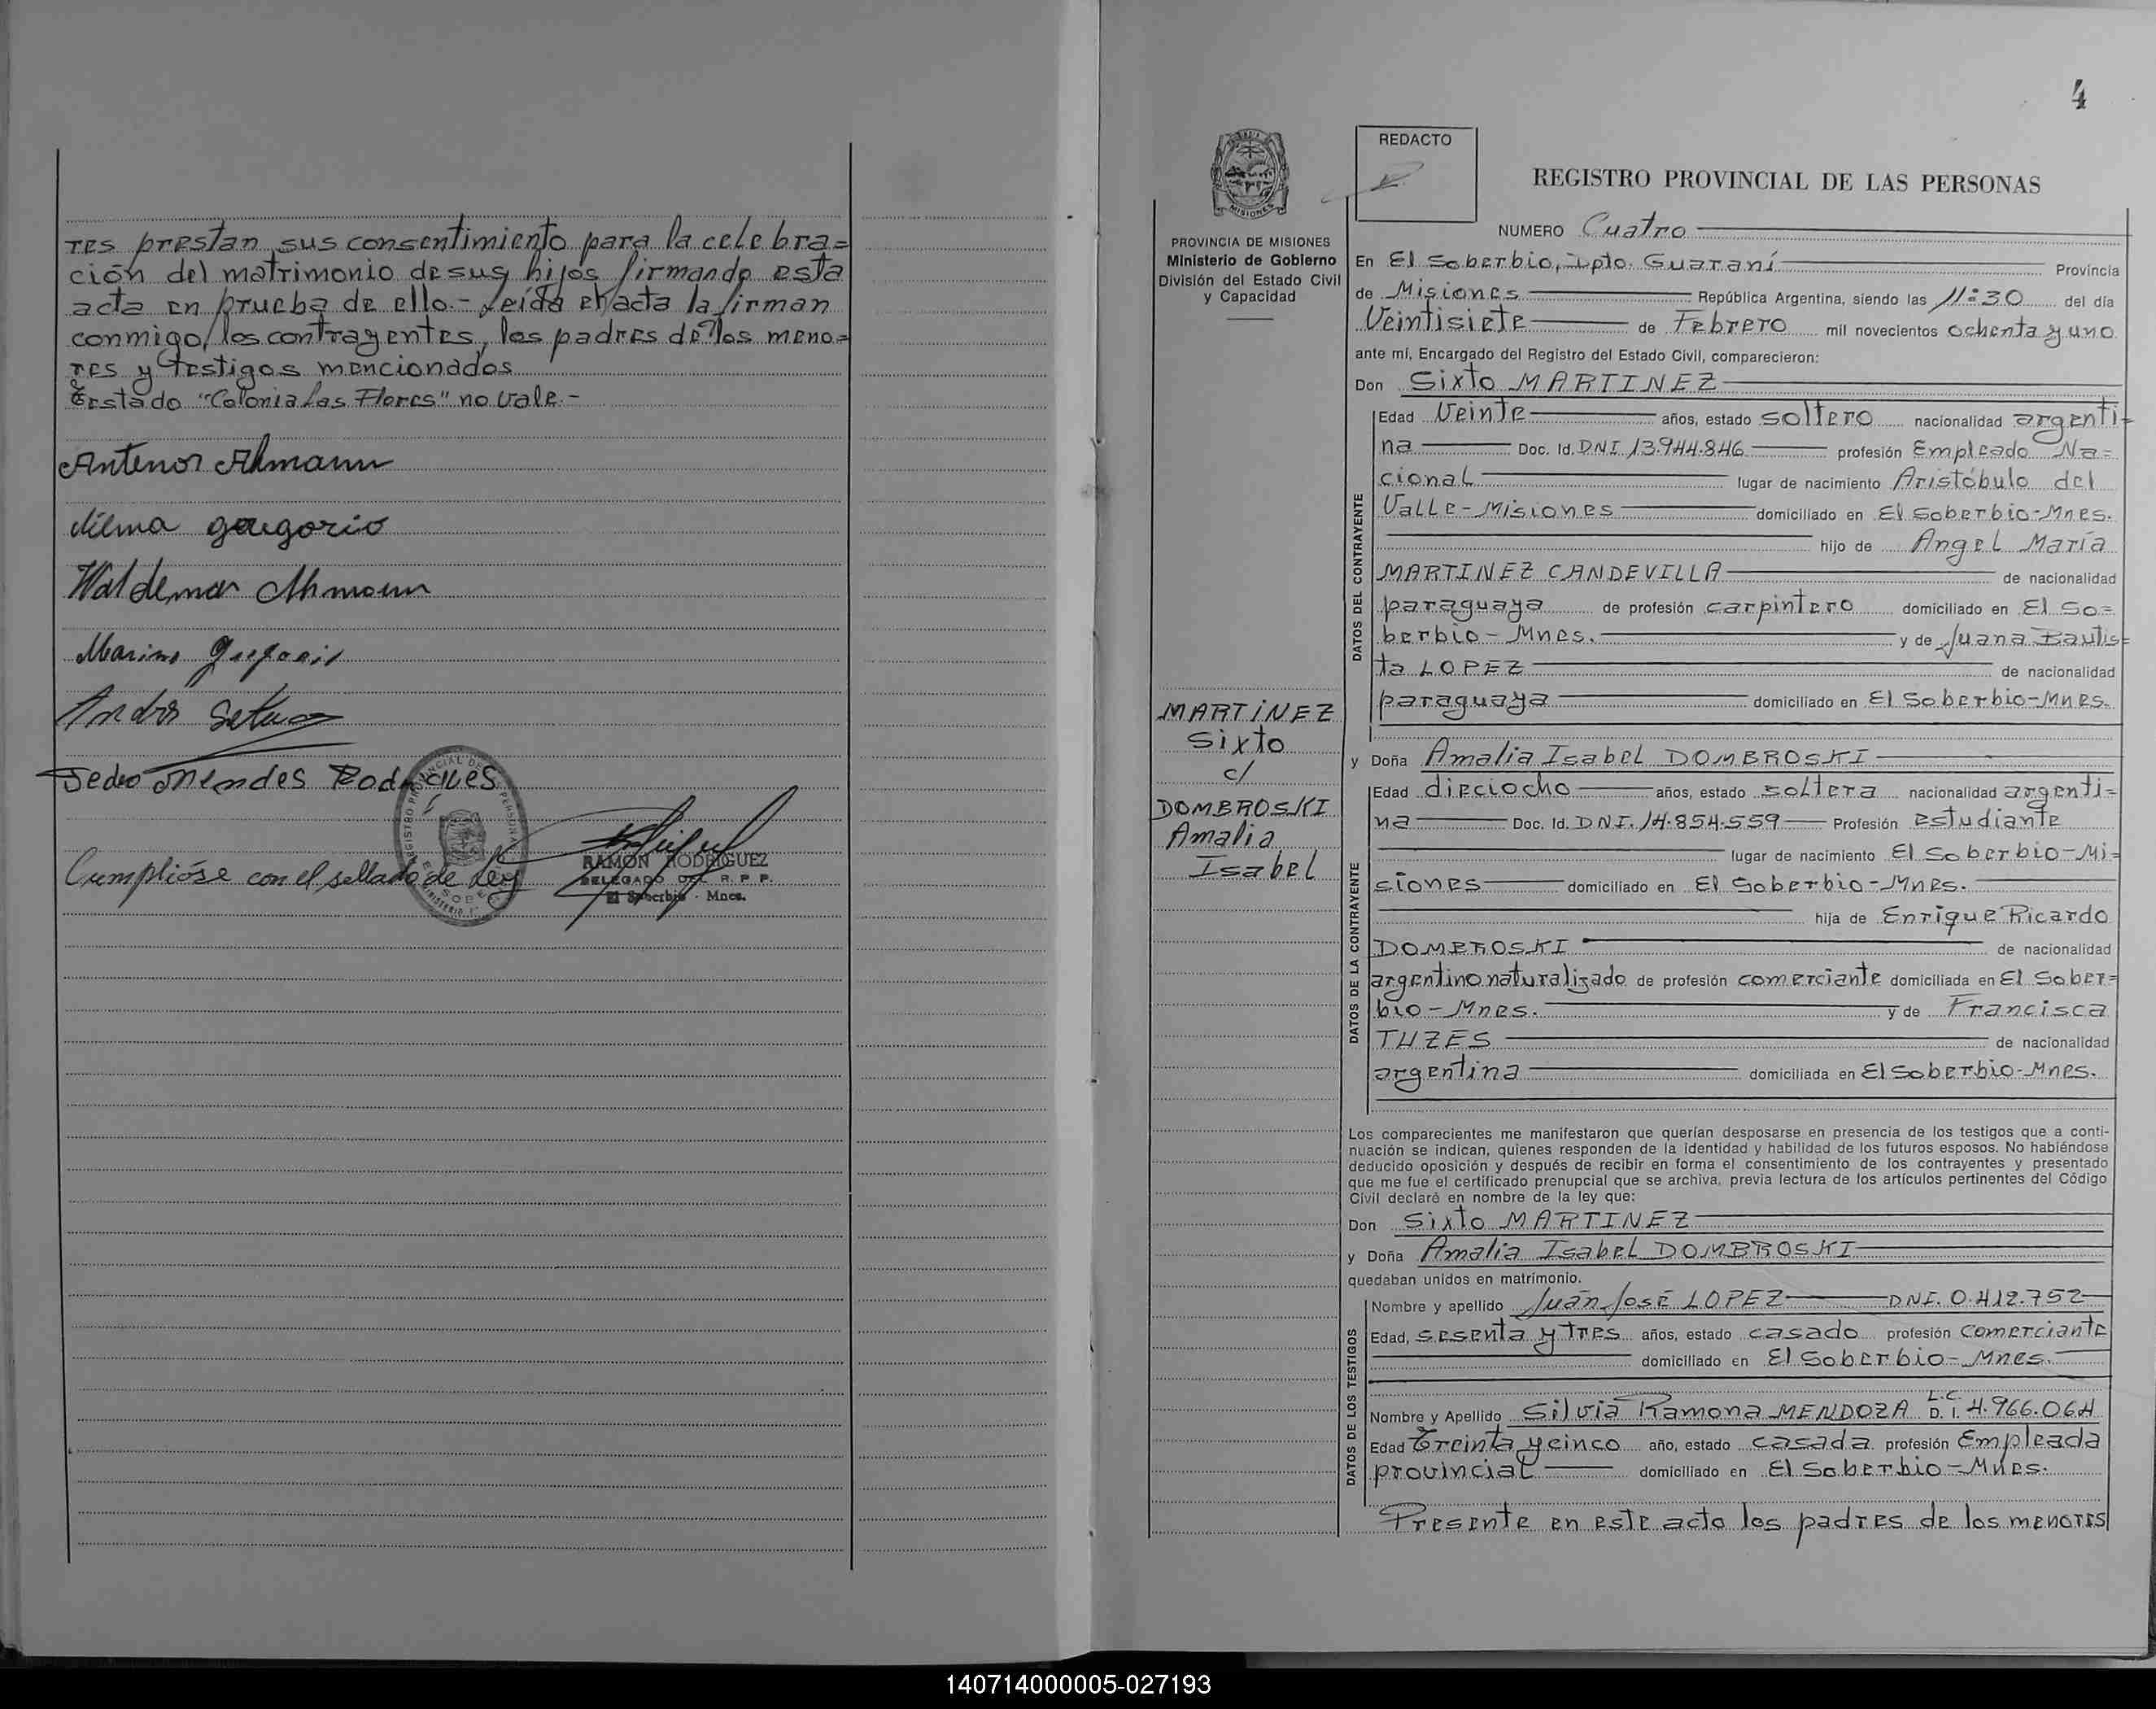 tes prestan sus consentimiento para la celebra=
ción del matrimonio de sus hijos firmando esta
acta en prueba de ello.- Leída el acta la firman
conmigo, los contrayentes, los padres de los meno=
res y testigos mencionados
Testado "Colonia Las Flores" no vale.-
Antenor Ahmann
Nilma gregorio
Waldemar Ahmann
Marino gregorio
Pedro Mendes Rodrigues
Cumplióse con el sellado de Ley
RAMON RODRIGUEZ
DELEGADO DEL R. P. P.
El Soberbio - Mnes.
4
REDACTO
MISIONES
PROVINCIA DE MISIONES
Ministerio de Gobierno
División del Estado Civil
y Capacidad
MARTINEZ
Sixto
c/
DOMBROSKI
Amalia
Isabel
REGISTRO PROVINCIAL DE LAS PERSONAS
NUMERO Cuatro
En El Soberbio, Dpto. Guaraní Provincia
de Misiones República Argentina, siendo las 11:30 del día
Veintisiete de Febrero mil novecientos ochenta y uno
ante mí, Encargado del Registro del Estado Civil, comparecieron:
Don Sixto MARTINEZ
DATOS DEL CONTRAYENTE
Edad Veinte años, estado soltero nacionalidad argenti=
na Doc. Id. DNI 13.944.846 profesión Empleado Na=
cional lugar de nacimiento Aristóbulo del
Valle-Misiones domiciliado en El Soberbio-Mnes.
hijo de Angel María
MARTINEZ CANDEVILLA de nacionalidad
paraguaya de profesión carpintero domiciliado en El So=
berbio-Mnes. y de Juana Bautis=
ta LOPEZ de nacionalidad
paraguaya domiciliado en El Soberbio-Mnes.
y Doña Amalia Isabel DOMBROSKI
DATOS DE LA CONTRAYENTE
Edad dieciocho años, estado soltera nacionalidad argenti=
na Doc. Id. DNI. 14.854.559 Profesión Estudiante
lugar de nacimiento El Soberbio-Mi=
siones domiciliado en El Soberbio-Mnes.
hija de Enrique Ricardo
DOMBROSKI de nacionalidad
argentino naturalizado de profesión comerciante domiciliada en El Sober=
bio-Mnes. y de Francisca
TUZES de nacionalidad
argentina domiciliada en El Soberbio-Mnes.
Los comparecientes me manifestaron que querían desposarse en presencia de los testigos que a conti-
nuación se indican, quienes responden de la identidad y habilidad de los futuros esposos. No habiéndose
deducido oposición y después de recibir en forma el consentimiento de los contrayentes y presentado
que me fue el certificado prenupcial que se archiva, previa lectura de los artículos pertinentes del Código
Civil declaré en nombre de la ley que:
Don Sixto MARTINEZ
y Doña Amalia Isabel DOMBROSKI
quedaban unidos en matrimonio.
DATOS DE LOS TESTIGOS
Nombre y apellido Juan José LOPEZ DNI. 0.412.752
Edad, sesenta y tres años, estado casado profesión comerciante
domiciliado en El Soberbio-Mnes.
Nombre y Apellido Silvia Ramona MENDOZA L.C. D. I. 4.966.064
Edad treinta y cinco año, estado casada profesión Empleada
provincial domiciliado en El Soberbio-Mnes.
Presente en este acto los padres de los menores
140714000005-027193